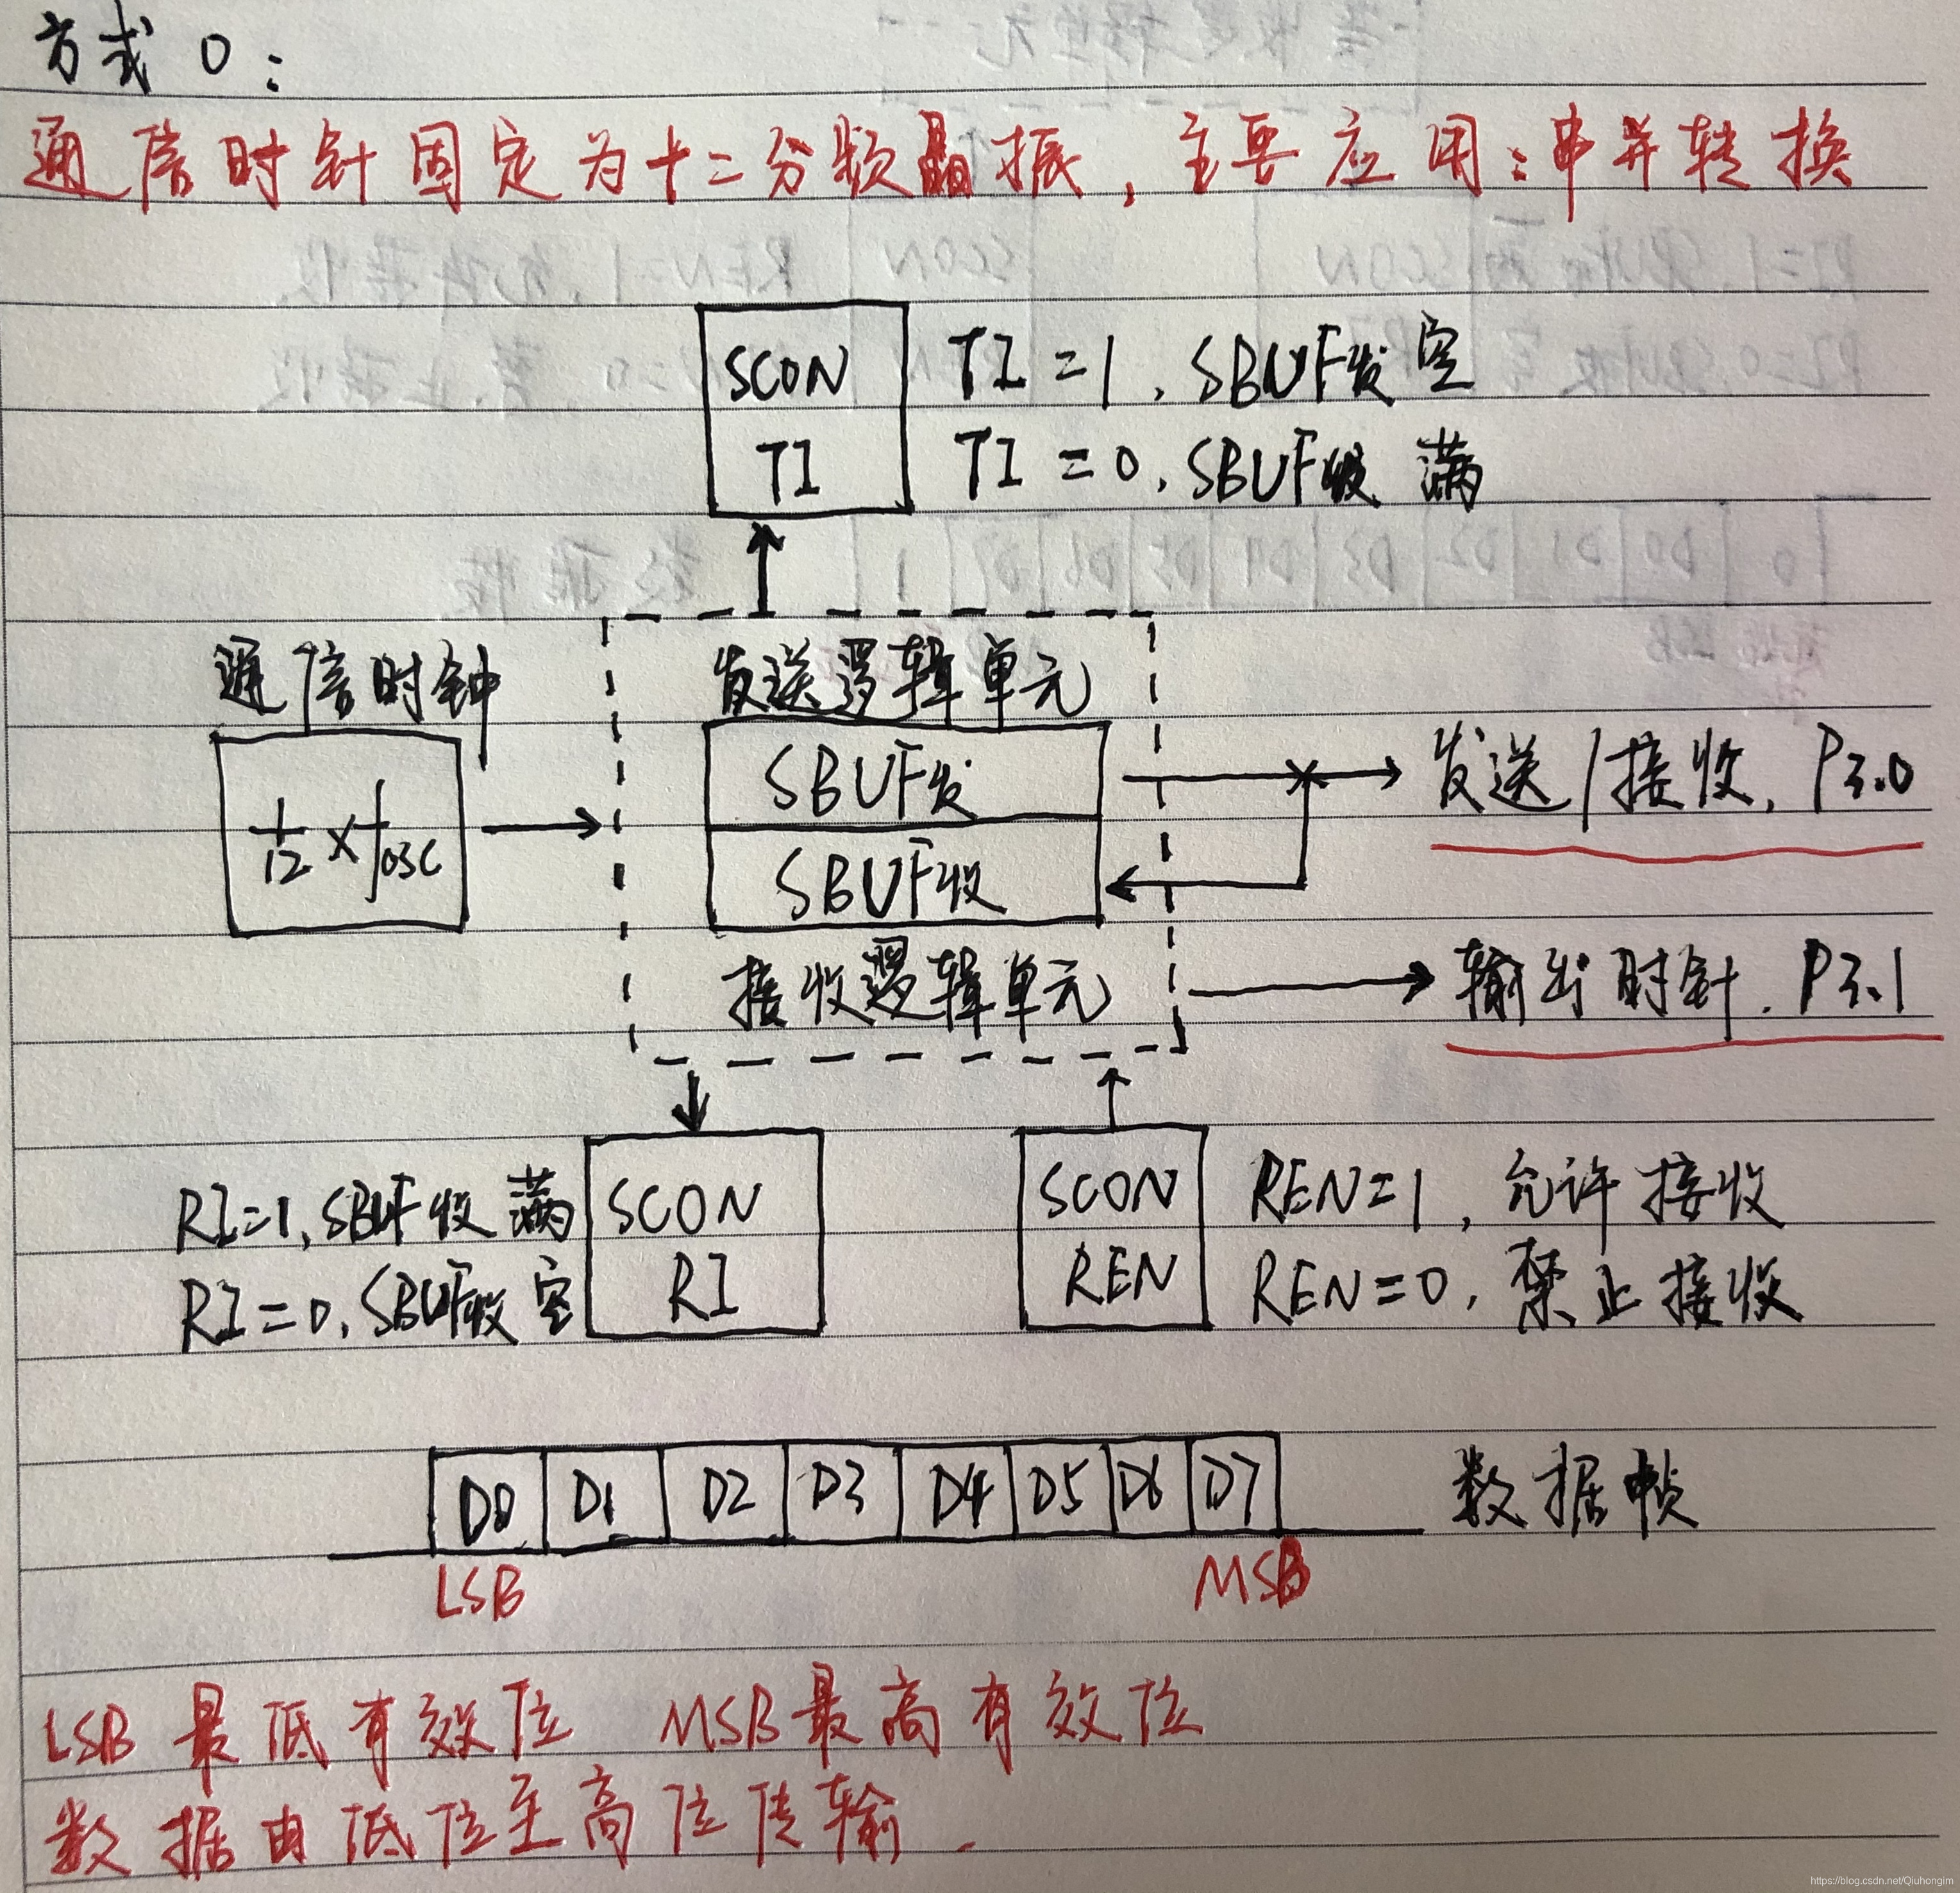 方式 0：
通信时针固定为十二分频晶振，主要应用：串并转换
SCON
TI
TI=1，SBUF发空
TI=0，SBUF收 满
通信时钟
1/12 × fosc
发送逻辑单元
SBUF发
SBUF收
接收逻辑单元
发送/接收，P3.0
输出时针．P3.1
RI=1，SBUF收满
RI=0，SBUF收空
SCON
RI
SCON
REN
REN=1，允许接收
REN=0，禁止接收
D0 D1 D2 D3 D4 D5 D6 D7
数据帧
LSB
MSB
LSB 最低有效位 MSB最高有效位
数据由低位至高位传输．
https://blog.csdn.net/Qiuhongim